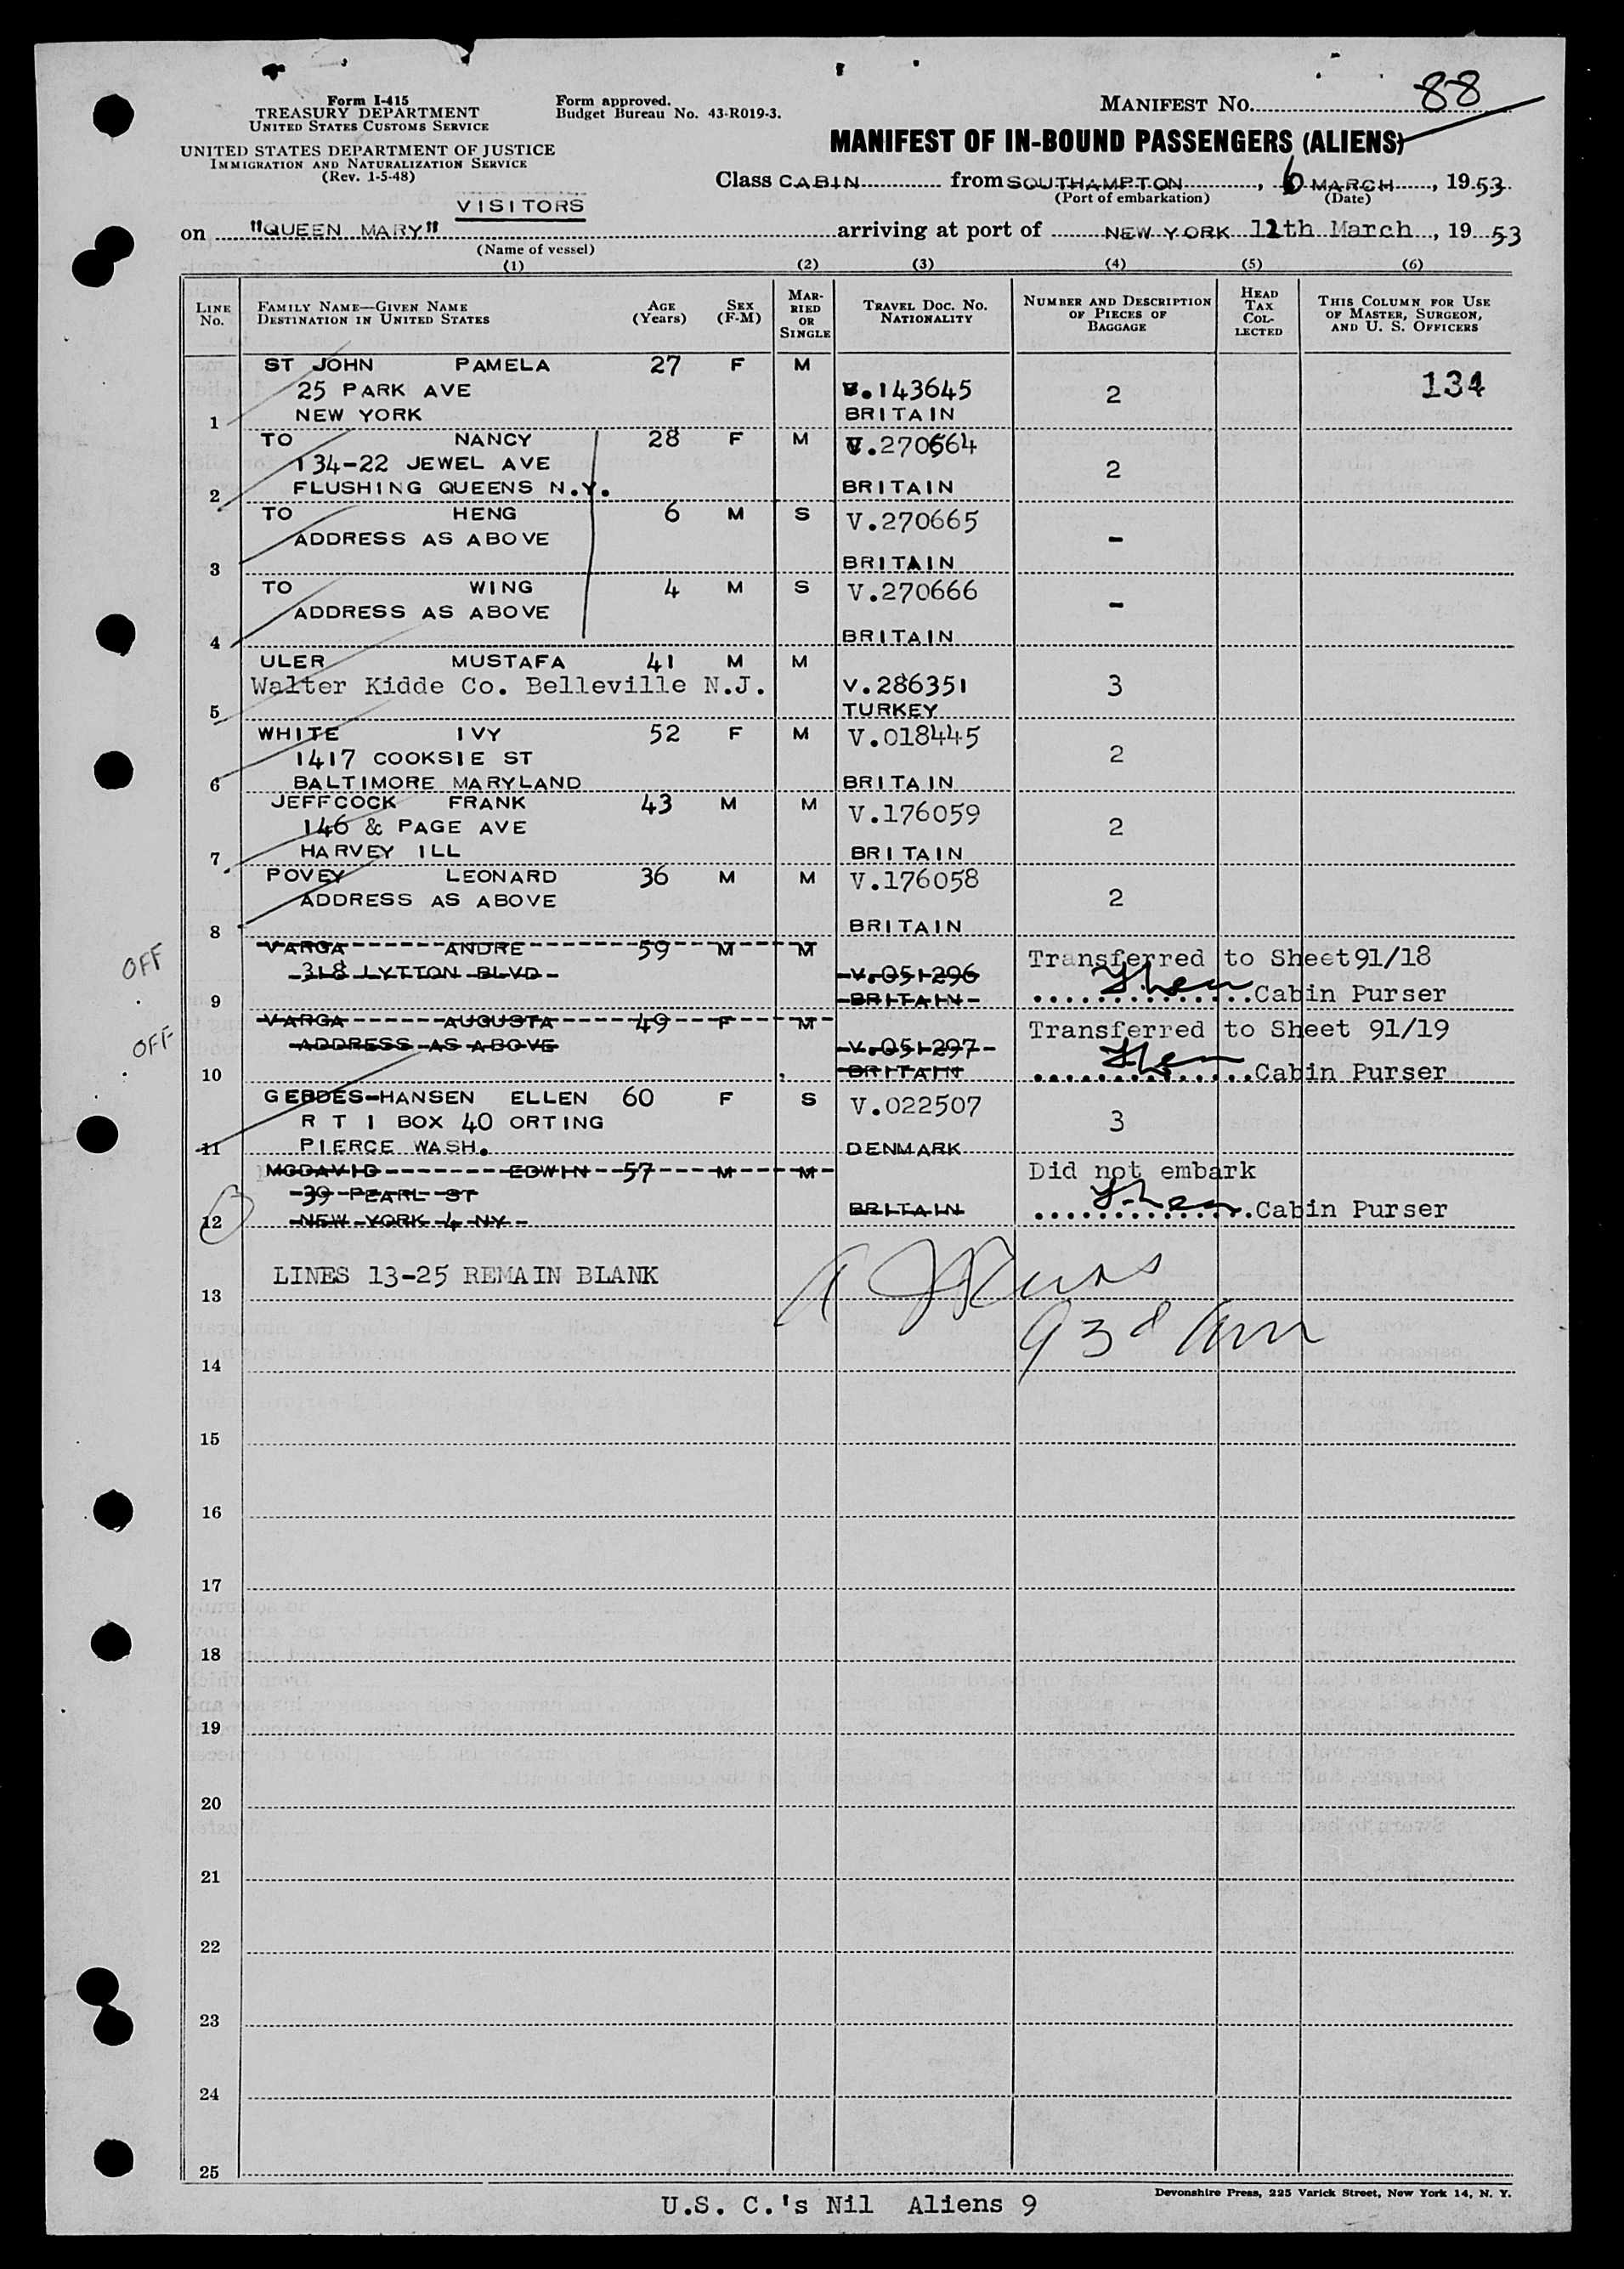 Form I-415
TREASURY DEPARTMENT
UNITED STATES CUSTOMS SERVICE
UNITED STATES DEPARTMENT OF JUSTICE
IMMIGRATION AND NATURALIZATION SERVICE
(Rev. 1-5-48)
Form approved.
Budget Bureau No. 43-R019-3.
MANIFEST No. 88
MANIFEST OF IN-BOUND PASSENGERS (ALIENS)
Class CABIN from SOUTHAMPTON, 6 MARCH, 1953
(Port of embarkation) (Date)
VISITORS
on "QUEEN MARY" arriving at port of NEW YORK 11th March, 1953
(Name of vessel)
(1) (2) (3) (4) (5) (6)
LINE No. FAMILY NAME—GIVEN NAME DESTINATION IN UNITED STATES AGE (Years) SEX (F-M) MARRIED OR SINGLE TRAVEL DOC. NO. NATIONALITY NUMBER AND DESCRIPTION OF PIECES OF BAGGAGE HEAD TAX COLLECTED THIS COLUMN FOR USE OF MASTER, SURGEON, AND U. S. OFFICERS
ST JOHN PAMELA 27 F M
25 PARK AVE V.143645 2 134
1 NEW YORK BRITAIN
TO NANCY 28 F M V.270664
134-22 JEWEL AVE 2
2 FLUSHING QUEENS N.Y. BRITAIN
TO HENG 6 M S V.270665
ADDRESS AS ABOVE -
3 BRITAIN
TO WING 4 M S V.270666
ADDRESS AS ABOVE -
4 BRITAIN
ULER MUSTAFA 41 M M
Walter Kidde Co. Belleville N.J. V.286351 3
5 TURKEY
WHITE IVY 52 F M V.018445
1417 COOKSIE ST 2
6 BALTIMORE MARYLAND BRITAIN
JEFFCOCK FRANK 43 M M V.176059
146 & PAGE AVE 2
7 HARVEY ILL BRITAIN
POVEY LEONARD 36 M M V.176058
ADDRESS AS ABOVE 2
8 BRITAIN
OFF VARGA ANDRE 59 M M Transferred to Sheet 91/18
318 LYTTON BLVD V.051296
9 BRITAIN Cabin Purser
OFF VARGA AUGUSTA 49 F M Transferred to Sheet 91/19
ADDRESS AS ABOVE V.051297
10 BRITAIN Cabin Purser
GERDES-HANSEN ELLEN 60 F S V.022507
R T 1 BOX 40 ORTING 3
11 PIERCE WASH. DENMARK
MCDAVID EDWIN 57 M M Did not embark
39 PEARL ST
12 NEW YORK 4 NY BRITAIN Cabin Purser
LINES 13-25 REMAIN BLANK
13
14
15
16
17
18
19
20
21
22
23
24
25
Devonshire Press, 225 Varick Street, New York 14, N. Y.
U.S. C.'s Nil Aliens 9